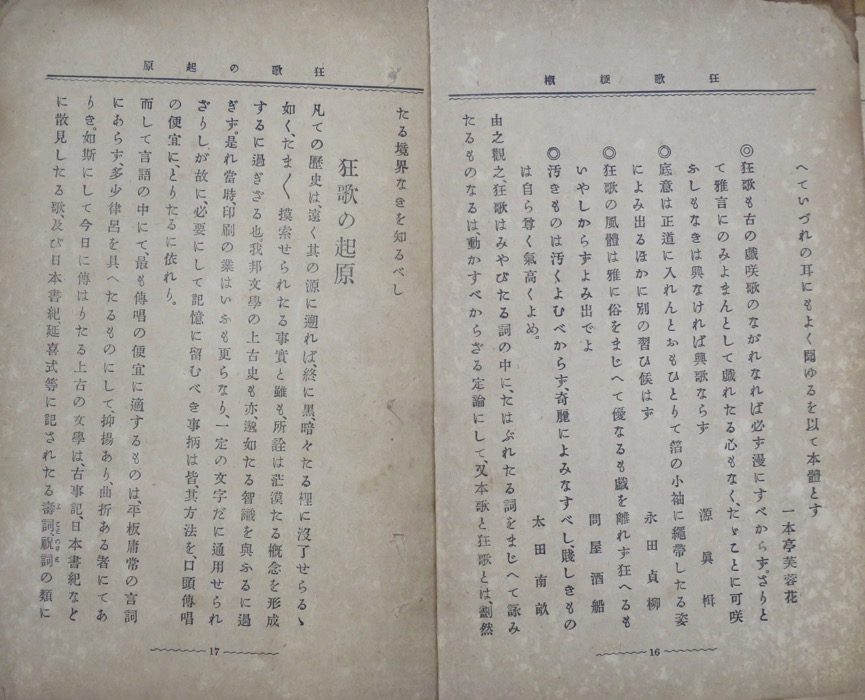 狂歌極楲
へていづれの耳にもよく聞ゆるを以て本體とす
一本亭芙蓉花
◎狂歌も古の戯咲歌のながれなれば必ず漫にすべからず。さりと
て雅言にのみよまんとして戯れたる心もなく、たゞことに可咲
ふしもなきは興なければ興歌ならず
源眞楫
◎底意は正道に入れんとおもひとりて箔の小袖に繩帶したる姿
によみ出るほかに別の習ひ候はず
永田貞柳
◎狂歌の風體は雅に俗をまじへて優なるも戯を離れず狂へるも
いやしからずよみ出でよ
問屋酒船
◎汚きものは汚くよむべからず、奇麗によみなすべし、賤しきもの
は自ら尊く氣高くよめ。
太田南畝
由之觀之、狂歌はみやびたる詞の中に、たはぶれたる詞をまじへて詠み
たるものなるは、動かすべからざる定論にして、又本歌と狂歌とは、劃然
16
狂歌の起原
たる境界なきを知るべし
狂歌の起原
凡ての歴史は、遠く其の源に遡れば、終に黒、暗々たる裡に沒了せらるゝ
如く、たま〱摸索せられたる事實と雖も、所詮は茫漠たる概念を形成
するに過ぎざる也我邦文學の上古史も亦、邈如たる智識を與ふるに過
ぎず。是れ當時、印刷の業はいふも更らなり、一定の文字だに通用せられ
ざりしが故に、必要にして記憶に留むべき事柄は皆、其方法を、口頭傳唱
の便宜に、とりたるに依れり。
而して言語の中にて、最も傳唱の便宜に適するものは、平板庸常の言詞
にあらず、多少律呂を具へたるものにして、抑揚あり、曲折ある者にてあ
りき。如斯にして今日に傳はりたる上古の文學は、古事記、日本書紀など
に散見したる歌、及び日本書紀、延喜式等に記されたる壽詞、祝詞の類に
17